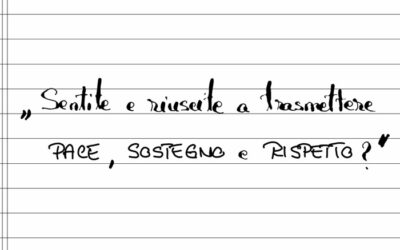 „Sentite e riuscite a trasmettere
PACE, SOSTEGNO e RISPETTO?"